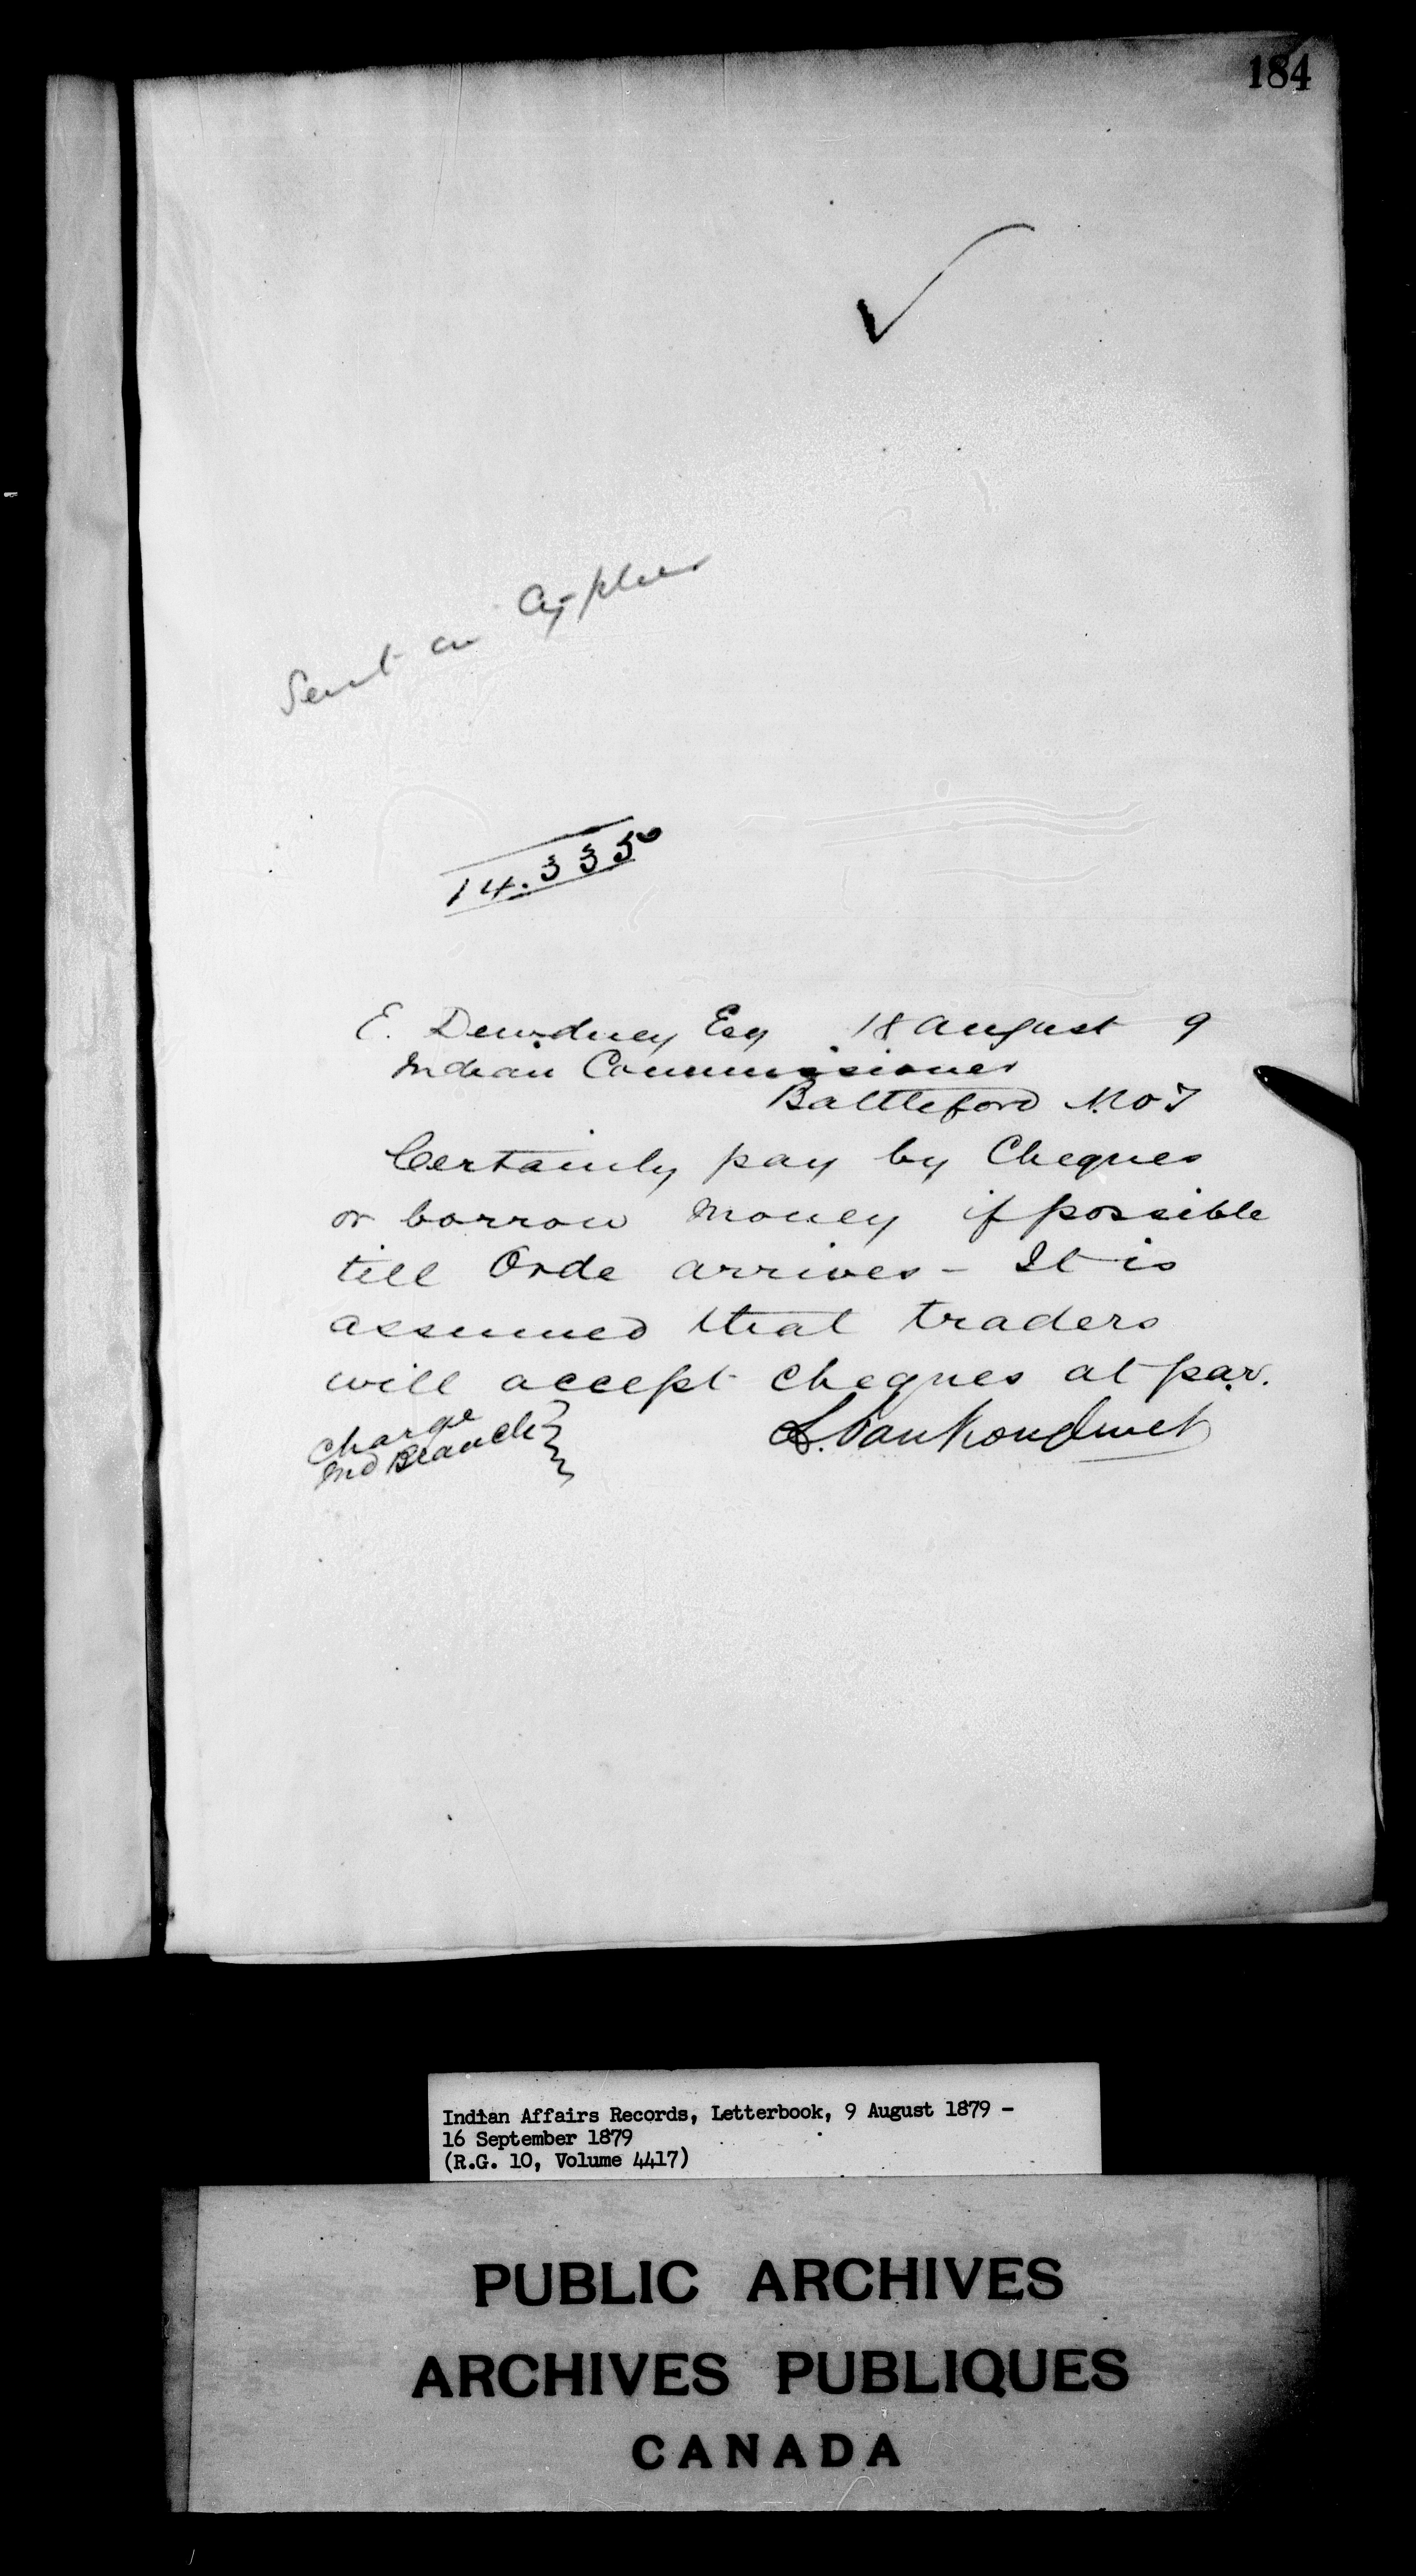 184
Sent in Cypher
14.335
E. Dewdney Esq 18 August 9
Indian Commissioner
Battleford N.W.T
Certainly pay by Cheques
or borrow money if possible
till Orde arrives - It is
assumed that traders
will accept cheques at par.
L. VanKoughnet
Charge
Ind Branch
Indian Affairs Records, Letterbook, 9 August 1879 -
16 September 1879
(R.G. 10, Volume 4417)
PUBLIC ARCHIVES
ARCHIVES PUBLIQUES
CANADA